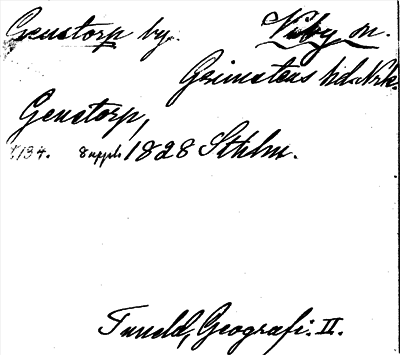 Genstorp by. Viby sn.
Grimstens hd. Nrk.
Genstorp,
s. 134. 8 uppl. 1828 Sthlm.
Tuneld, Geografi. II.